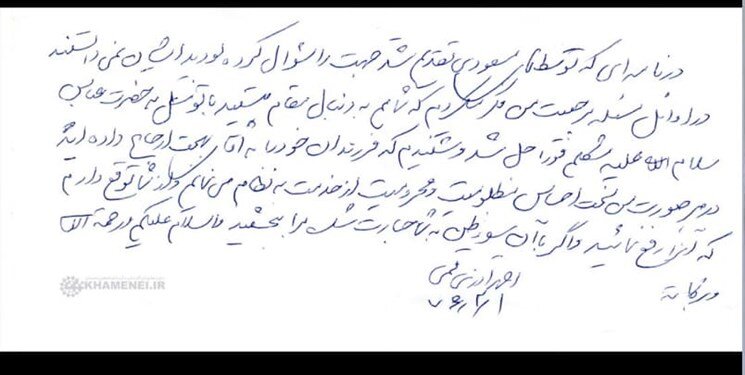 در نامه ای که توسط آقای مسعودی تقدیم شد جهت را سئوال کرده بودید ایشان نمی دانستند
در اوائل مسئله مرجعیت من فکر می کردم که شما هم به دنبال مقام هستید با توسل به حضرت عباس
سلام الله علیه مشکلم فورا حل شد و شنیدم که فرزندان خود را به آقای بهجت ارجاع داده اید
در هر صورت من تحت احساس مظلومیت و محرومیت از خدمت به نظام می نمایم و از شما توقع دارم
که آنرا رفع نمائید و اگر با آن سوء ظن به شما جسارت شد مرا ببخشید والسلام علیکم و رحمة الله
و برکاته
احمد آذری قمی
۷۶/۲/۱
KHAMENEI.IR